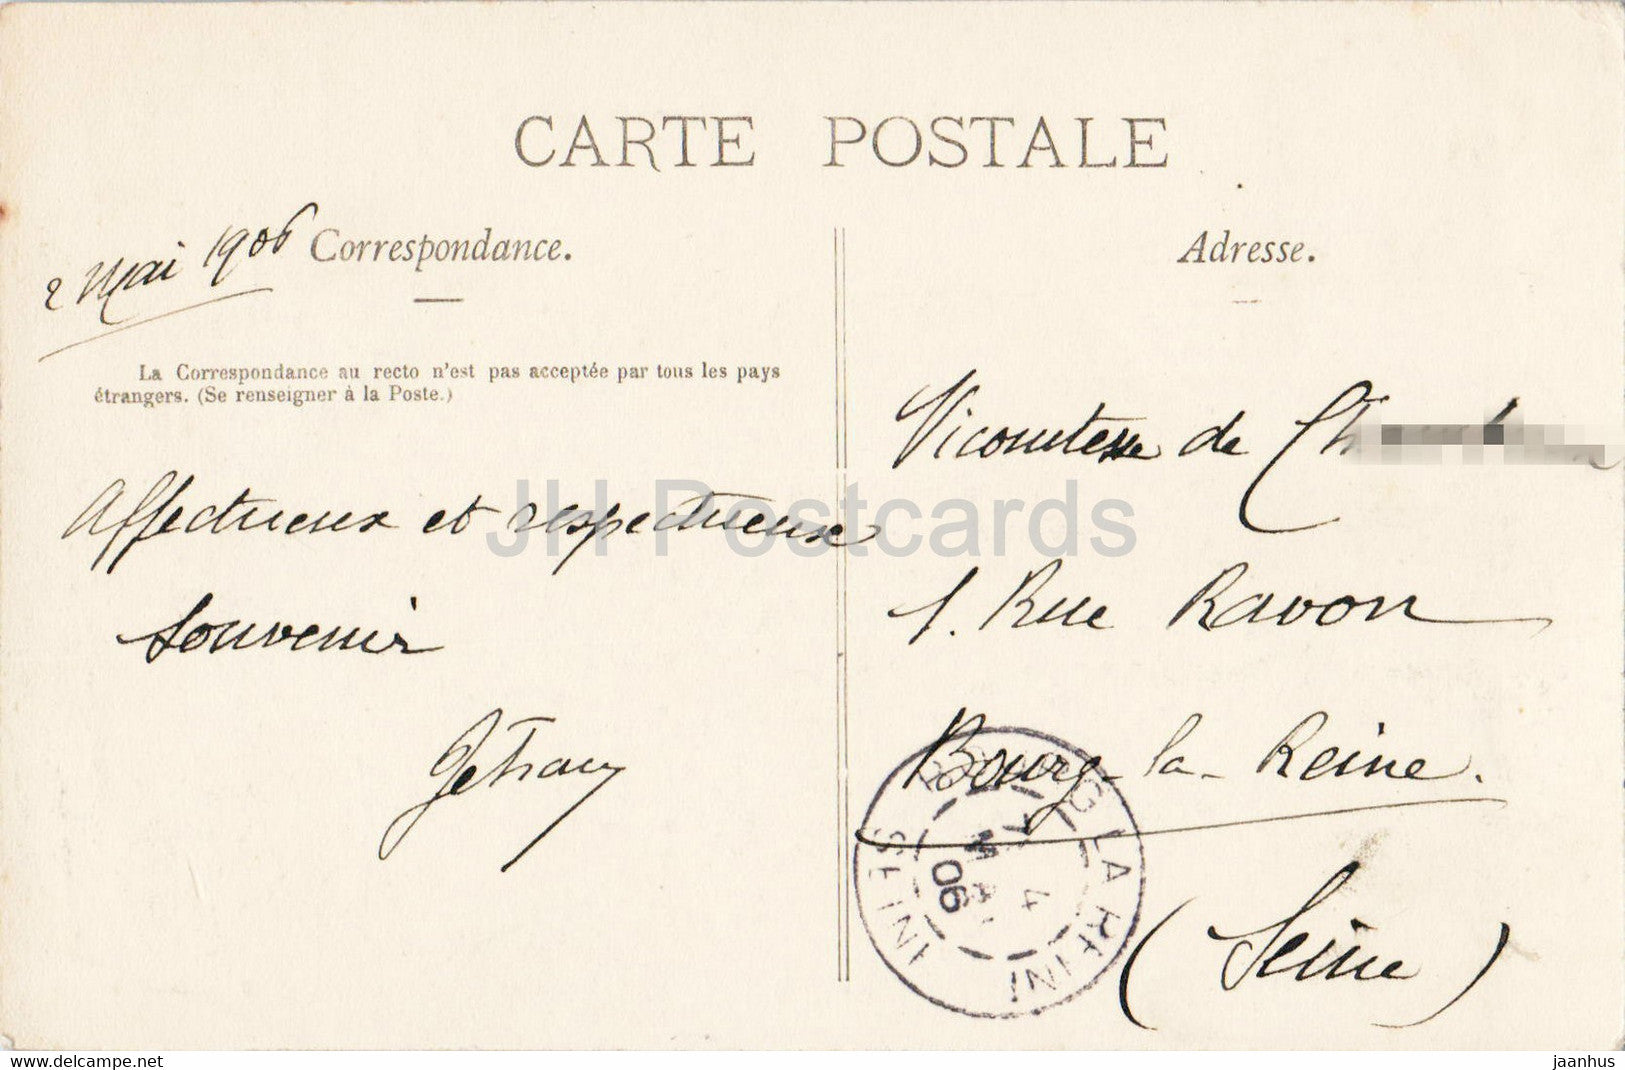 CARTE POSTALE
2 Mai 1906
Correspondance.
La Correspondance au recto n'est pas acceptée par tous les pays
étrangers. (Se renseigner à la Poste.)
Affectueux et respectueux
souvenir
Adresse.
Vicomtesse de
1. Rue Ravon
Bourg-la-Reine.
(Seine)
BOURG LA REINE
SEINE
4
MAI
06
JH Postcards
www.delcampe.net
jaanhus